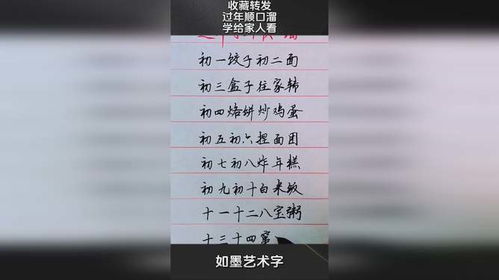 收藏转发
过年顺口溜
学给家人看
初一饺子初二面
初三盒子往家转
初四烙饼炒鸡蛋
初五初六捏面团
初七初八炸年糕
初九初十白米饭
十一十二八宝粥
十三十四
如墨艺术字